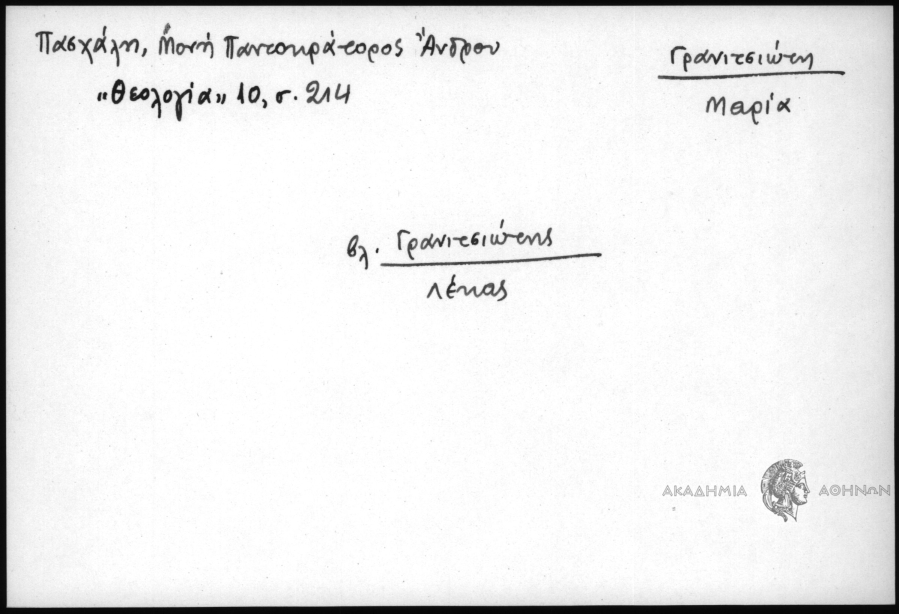 Πασχάλη, Μονή Παντοκράτορος Ἄνδρου
"Θεολογία" 10, σ. 214
Γρανιτσιώτη
Μαρία
βλ. Γρανιτσιώτης
Λέκας
ΑΚΑΔΗΜΙΑ ΑΘΗΝΩΝ